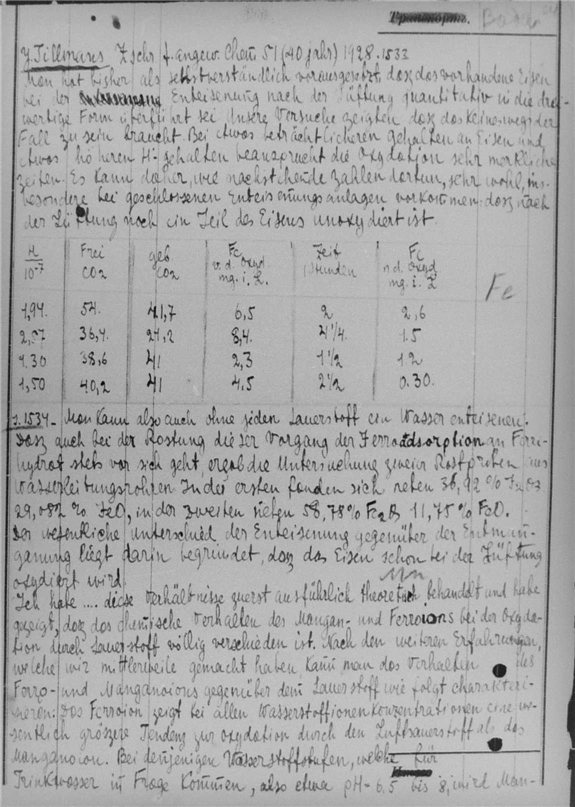 Транспорт.
J. Tillmans Zschr. f. angew. Chem 51 (40 Jahr) 1928. 1533
Man hat bisher als selbstverständlich vorausgesetzt, dasz das vorhandene Eisen
bei der Enteisenung nach der Lüftung quantitativ in die drei-
wertige Form überführt sei. Unsere Versuche zeigten dasz das keineswegs der
Fall zu sein braucht. Bei etwas beträchtlicheren gehalten an Eisen und
etwas höheren H-gehalten beansprucht die Oxydation sehr merkliche
Zeiten. Es kann daher, wie nachstehende Zahlen dartun, sehr wohl, ins-
besondere bei geschlossenen Enteisenungsanlagen vorkommen, dasz nach
der Lüftung noch ein Teil des Eisens unoxydiert ist.
H 10⁻⁷ | Frei CO2 | geb CO2 | Fe v. d. Oxyd mg. i. L. | Zeit Stunden | Fe n. d. Oxyd mg. i. L
1,94 54. 41,7 6,5 2 2,6
36,4 8,4 2¼ 1.5
38,6 41 2,3 1½ 12
1,50 40,2 41 4,5 2½ 0.30.
Fe
S. 1534 - Man kann also auch ohne jeden Sauerstoff ein Wasser enteisenen.
Dasz auch bei der Rostung dieser Vorgang der Ferroadsorption an Ferri-
hydrat stets vor sich geht, ergab die Untersuchung zweier Rostproben aus
Wasserleitungsrohren. In der ersten fanden sich neben 36,92 % Fe2O3
29,082 % FeO, in der zweiten neben 58,78% Fe2O3 11,75% FeO.
Der wesentliche Unterschied der Enteisenung gegenüber der Entman-
ganung liegt darin begründet, dasz das Eisen schon bei der Lüftung
oxydiert wird.
Mn
Ich habe .... diese Verhältnisse zuerst ausführlich theoretisch behandelt und habe
gezeigt, dasz das chemische Verhalten des Mangan- und Ferroions bei der Oxyda-
tion durch Sauerstoff völlig verschieden ist. Nach den weiteren Erfahrungen,
welche wir mittlerweile gemacht haben, kann man das Verhalten des
Ferro- und Manganoions gegenüber dem Sauerstoff wie folgt charakteri-
sieren: Das Ferroion zeigt bei allen Wasserstoffionenkonzentrationen eine we-
sentlich gröszere Tendenz zur Oxydation durch den Luftsauerstoff als das
Manganoion. Bei denjenigen Wasserstoffstufen, welche für
Trinkwasser in Frage kommen, also etwa pH - 6.5 bis 8, wird Man-